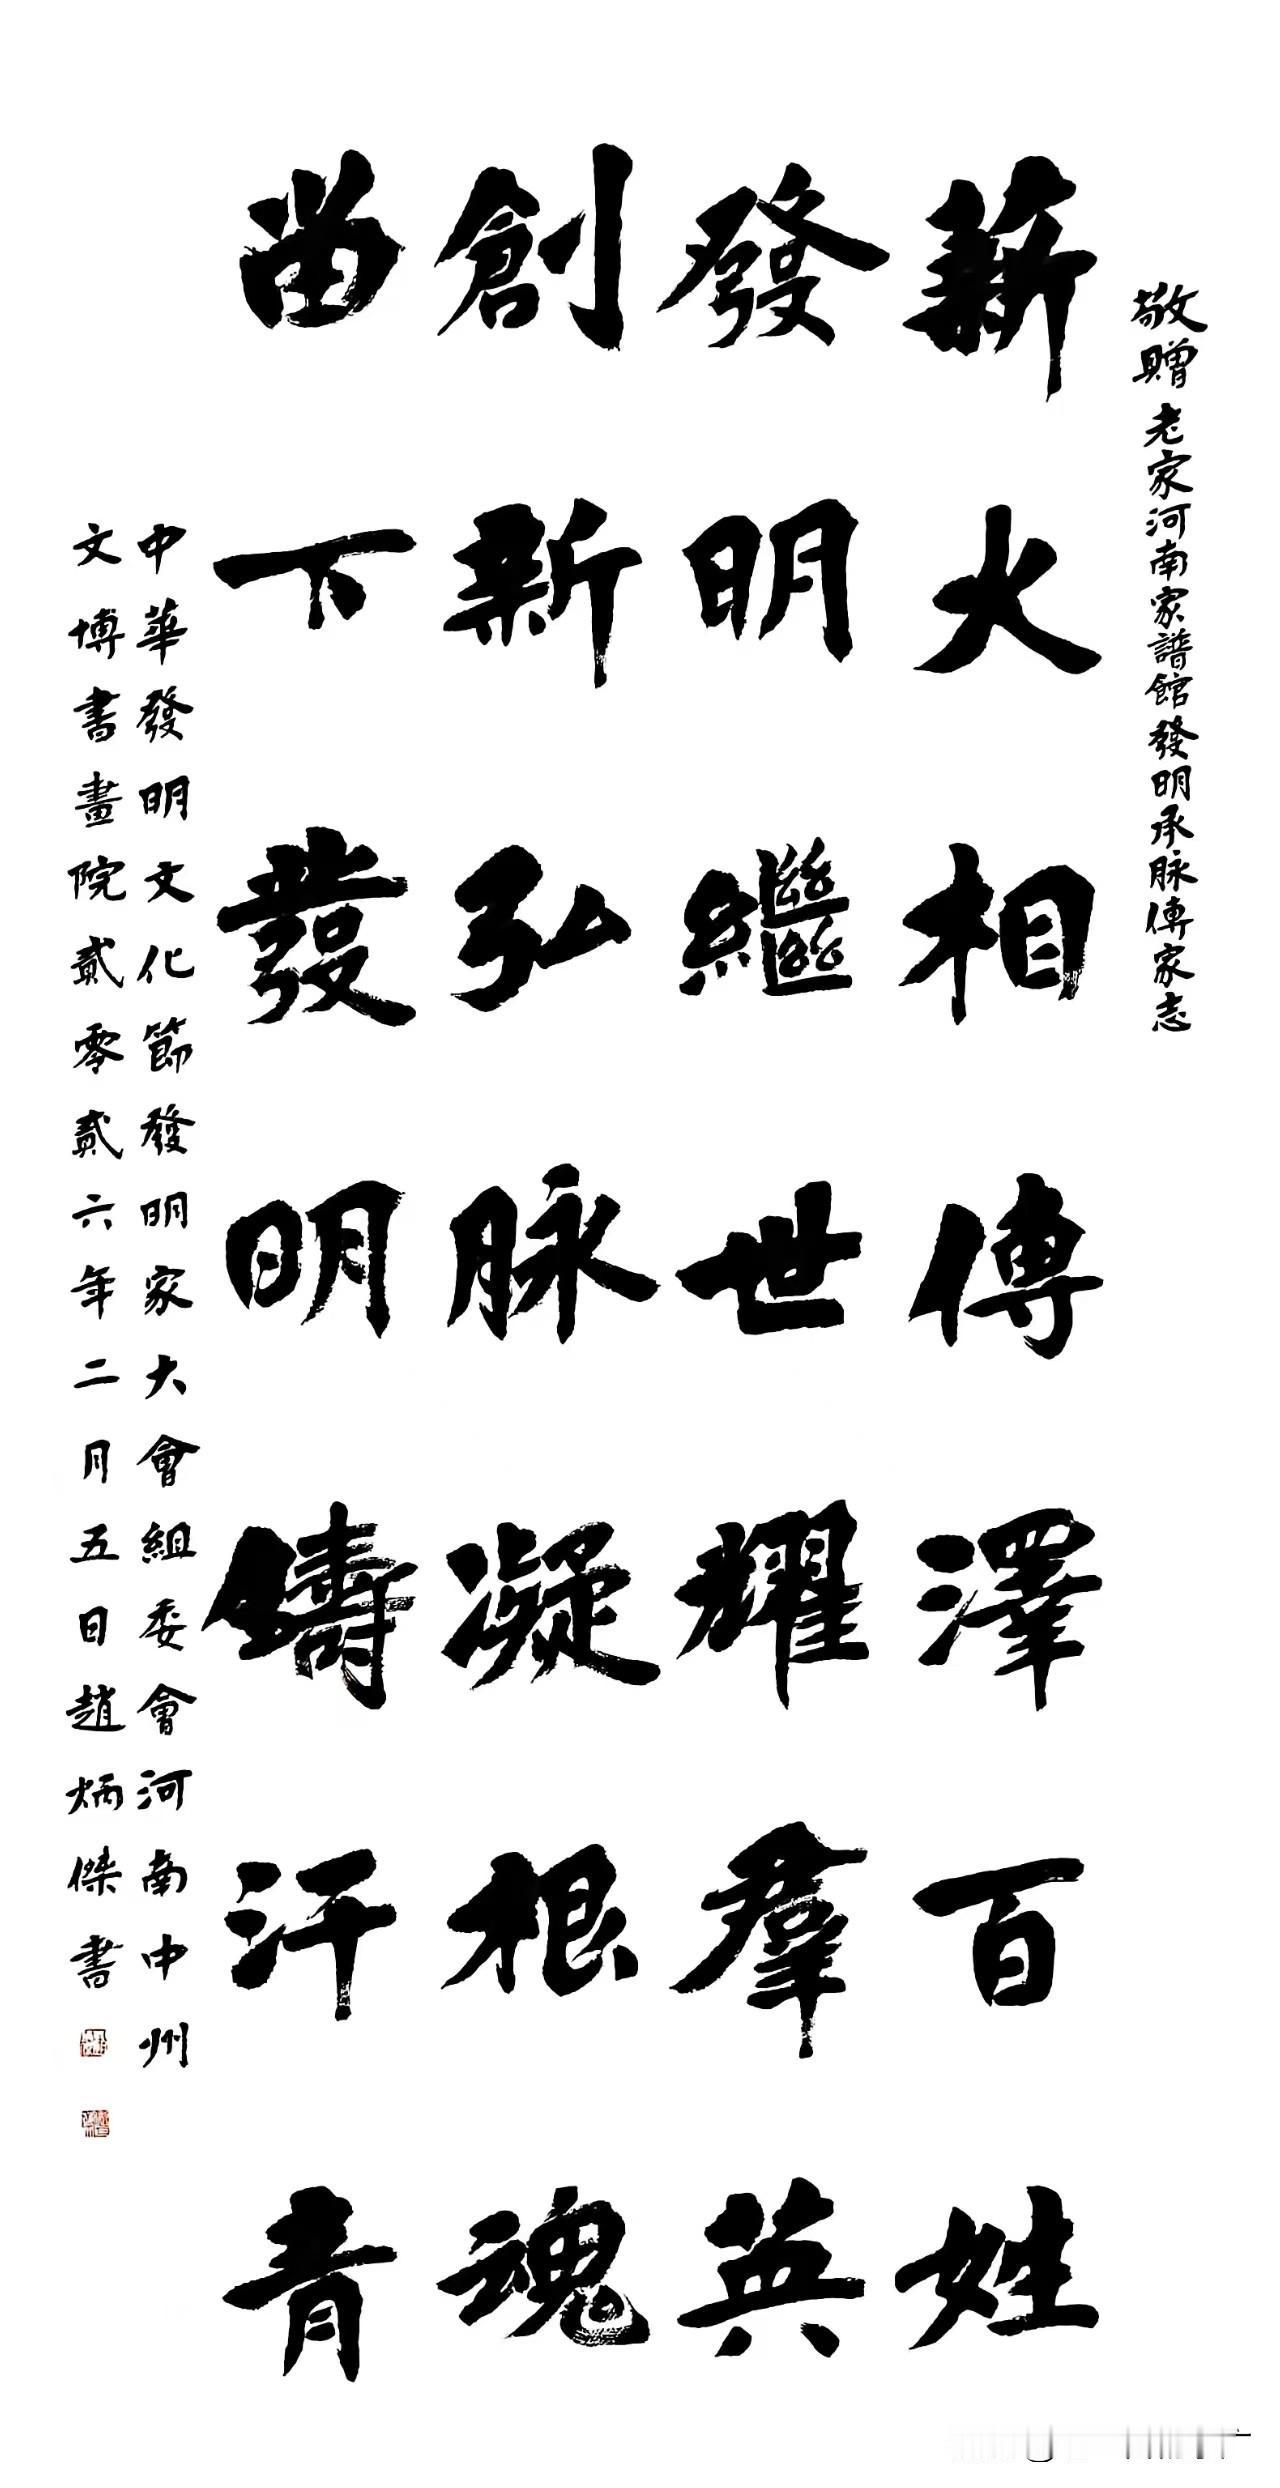 敬贈老家河南家譜館發明承脉傳家志
薪火相傳澤百姓
發明繼世耀羣英
創新弘脉凝根魂
當下發明鑄汗青
中華發明文化節發明家大會組委會河南中州
文博書畫院貳零貳六年二月五日趙炳傑書